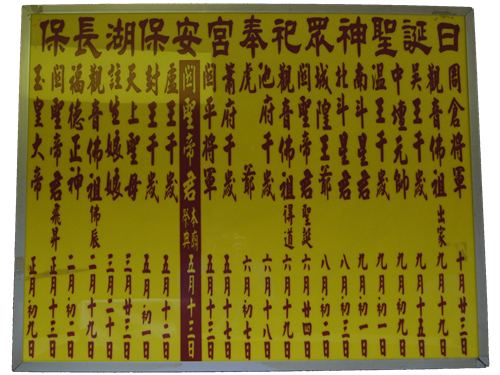 保長湖保安宮奉祀眾神聖誕日
玉皇大帝 正月·初九日
關聖帝君 飛昇 正月·十三日
福德正神 二月·初二日
觀音佛祖 佛辰 二月·十九日
註生娘娘 三月·二十日
天上聖母 三月·廿三日
封王千歲 五月·初一日
盧王千歲 五月·十二日
關聖帝君 本廟祭典 五月·十三日
關平將軍 五月·十三日
蕭府千歲 五月
虎爺 六月·初七日
池府千歲 六月·十八日
觀音佛祖 得道 六月·十九日
關聖帝君 聖誕 六月·廿四日
城隍王爺 八月·初二日
北斗星君 八月·初三日
南斗星君 九月·初一日
溫王千歲 九月·初一日
中壇元帥 九月·初九日
吳王千歲 九月·十五日
觀音佛祖 出家 九月·十九日
周倉將軍 十月·廿三日